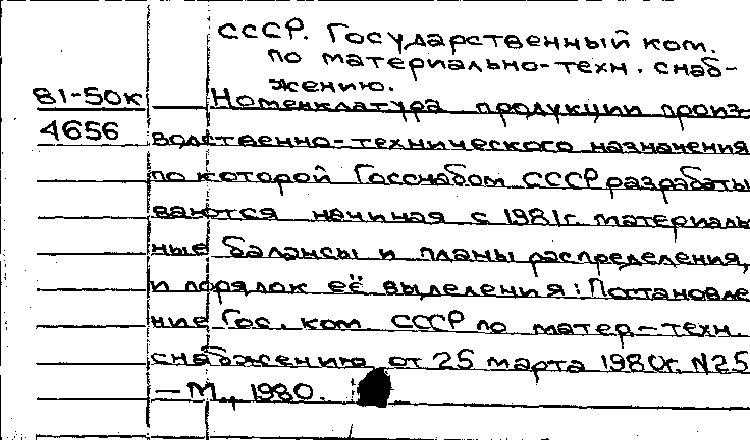 СССР. Государственный ком.
по материально-техн. снаб-
жению.
81-50к Номенклатура продукции произ-
4656 водственно-технического назначения
по которой Госснабом СССР разрабаты
ваются начиная с 1981г. материаль
ные балансы и планы распределения,
и порядок её выделения: Постановле
ние Гос. ком. СССР по матер-техн.
снабжению от 25 марта 1980г. N25
— М., 1980.